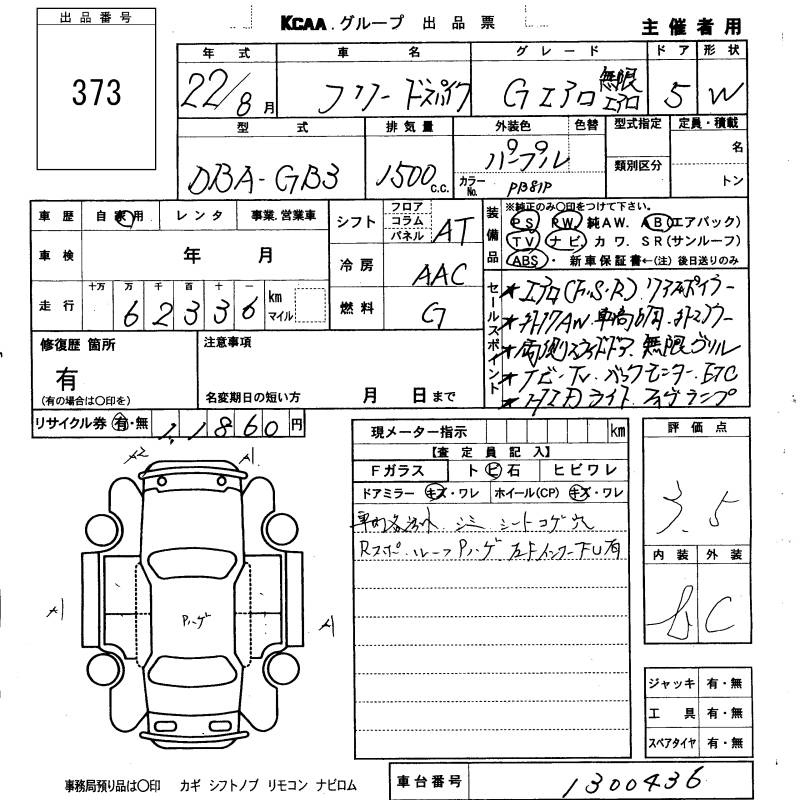 出品番号
373
KCAA.グループ 出品票
主催者用
年式 車名 グレード ドア 形状
22/8月 フリードスパイク Gエアロ 無限エアロ 5 W
型式 排気量 外装色 色替 型式指定 定員・積載
DBA-GB3 1500 c.c. パープル
カラーNo. PB81P
類別区分
名
トン
車歴 自家用 レンタ 事業.営業車
車検 年 月
走行 十万 万 千 百 十 一
62336 km マイル
シフト フロア コラム パネル AT
冷房 AAC
燃料 G
装備品
※純正のみ〇印をつけて下さい。
PS PW. 純AW. AB(エアバック)
TV ナビ. カワ. SR(サンルーフ)
ABS・ 新車保証書←(注)後日送りのみ
セールスポイント
★エアロ(F.S.R). リアスポイラー
★外17AW 車高
★両側スライドドア. 無限グリル
★ナビ・TV. バックモニター. ETC
★HIDライト. フォグランプ
修復歴 箇所
有
(有の場合は〇印を)
注意事項
名変期日の短い方 月 日まで
リサイクル券 有・無 11860円
現メーター指示 km
【査定員記入】
Fガラス ト ビ 石 ヒビワレ
ドアミラー キズ・ワレ ホイール(CP) キズ・ワレ
シミ シートコゲ穴
Rスポ. ルーフPハゲ 左Fインナー下U有
評価点
3.5
内装 外装
C
A2 A1
A1 Pハゲ A1
ジャッキ 有・無
工具 有・無
スペアタイヤ 有・無
事務局預り品は〇印 カギ シフトノブ リモコン ナビロム
車台番号 1300436